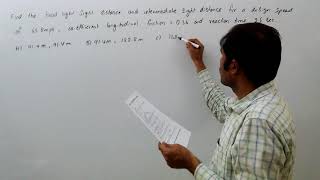 Find the head light sight distance and intermediate sight distance for a design speed
of 65 kmph, coefficient longitudinal friction = 0.36 and reaction time 2.5 sec.
A) 91.4 m, 91.4 m B) 91.4 m, 182.8 m c)